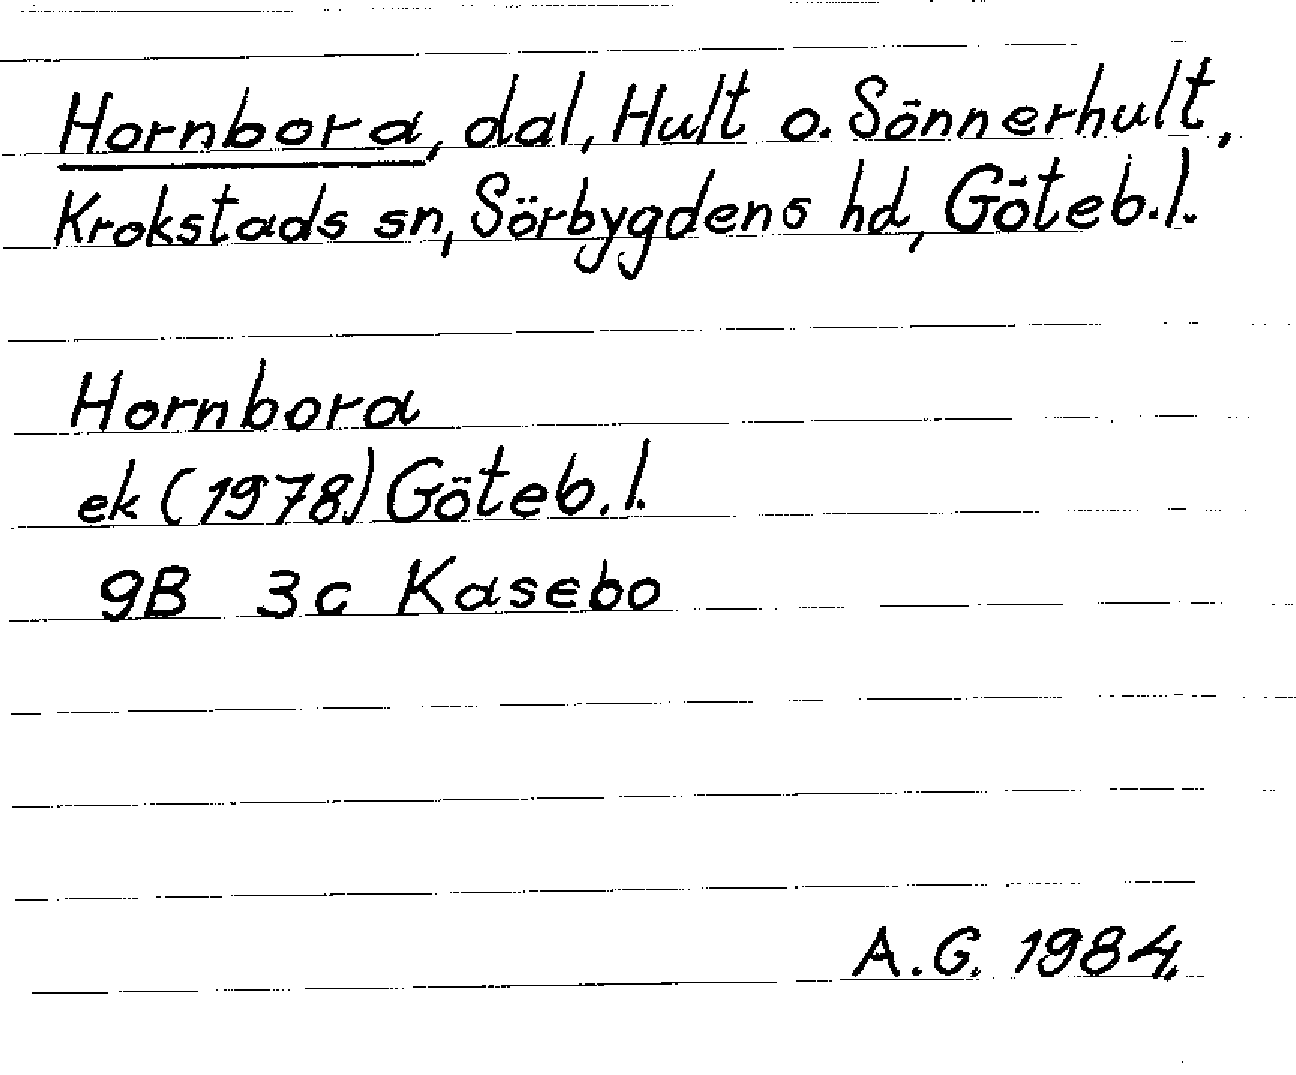 Hornbora, dal, Hult o. Sönnerhult,
Krokstads sn, Sörbygdens hd, Göteb.l.
Hornbora
ek (1978) Göteb.l.
9B 3c Kasebo
A.G. 1984.